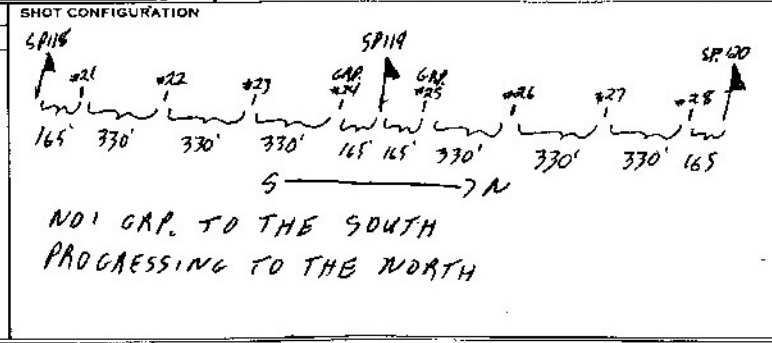 SHOT CONFIGURATION
SP118 SP119 SP. 120
#21 #22 #23 GRP. #24 GRP. #25 #26 #27 #28
165' 330' 330' 330' 165' 165' 330' 330' 330' 165
S N
NO1 GRP. TO THE SOUTH
PROGRESSING TO THE NORTH